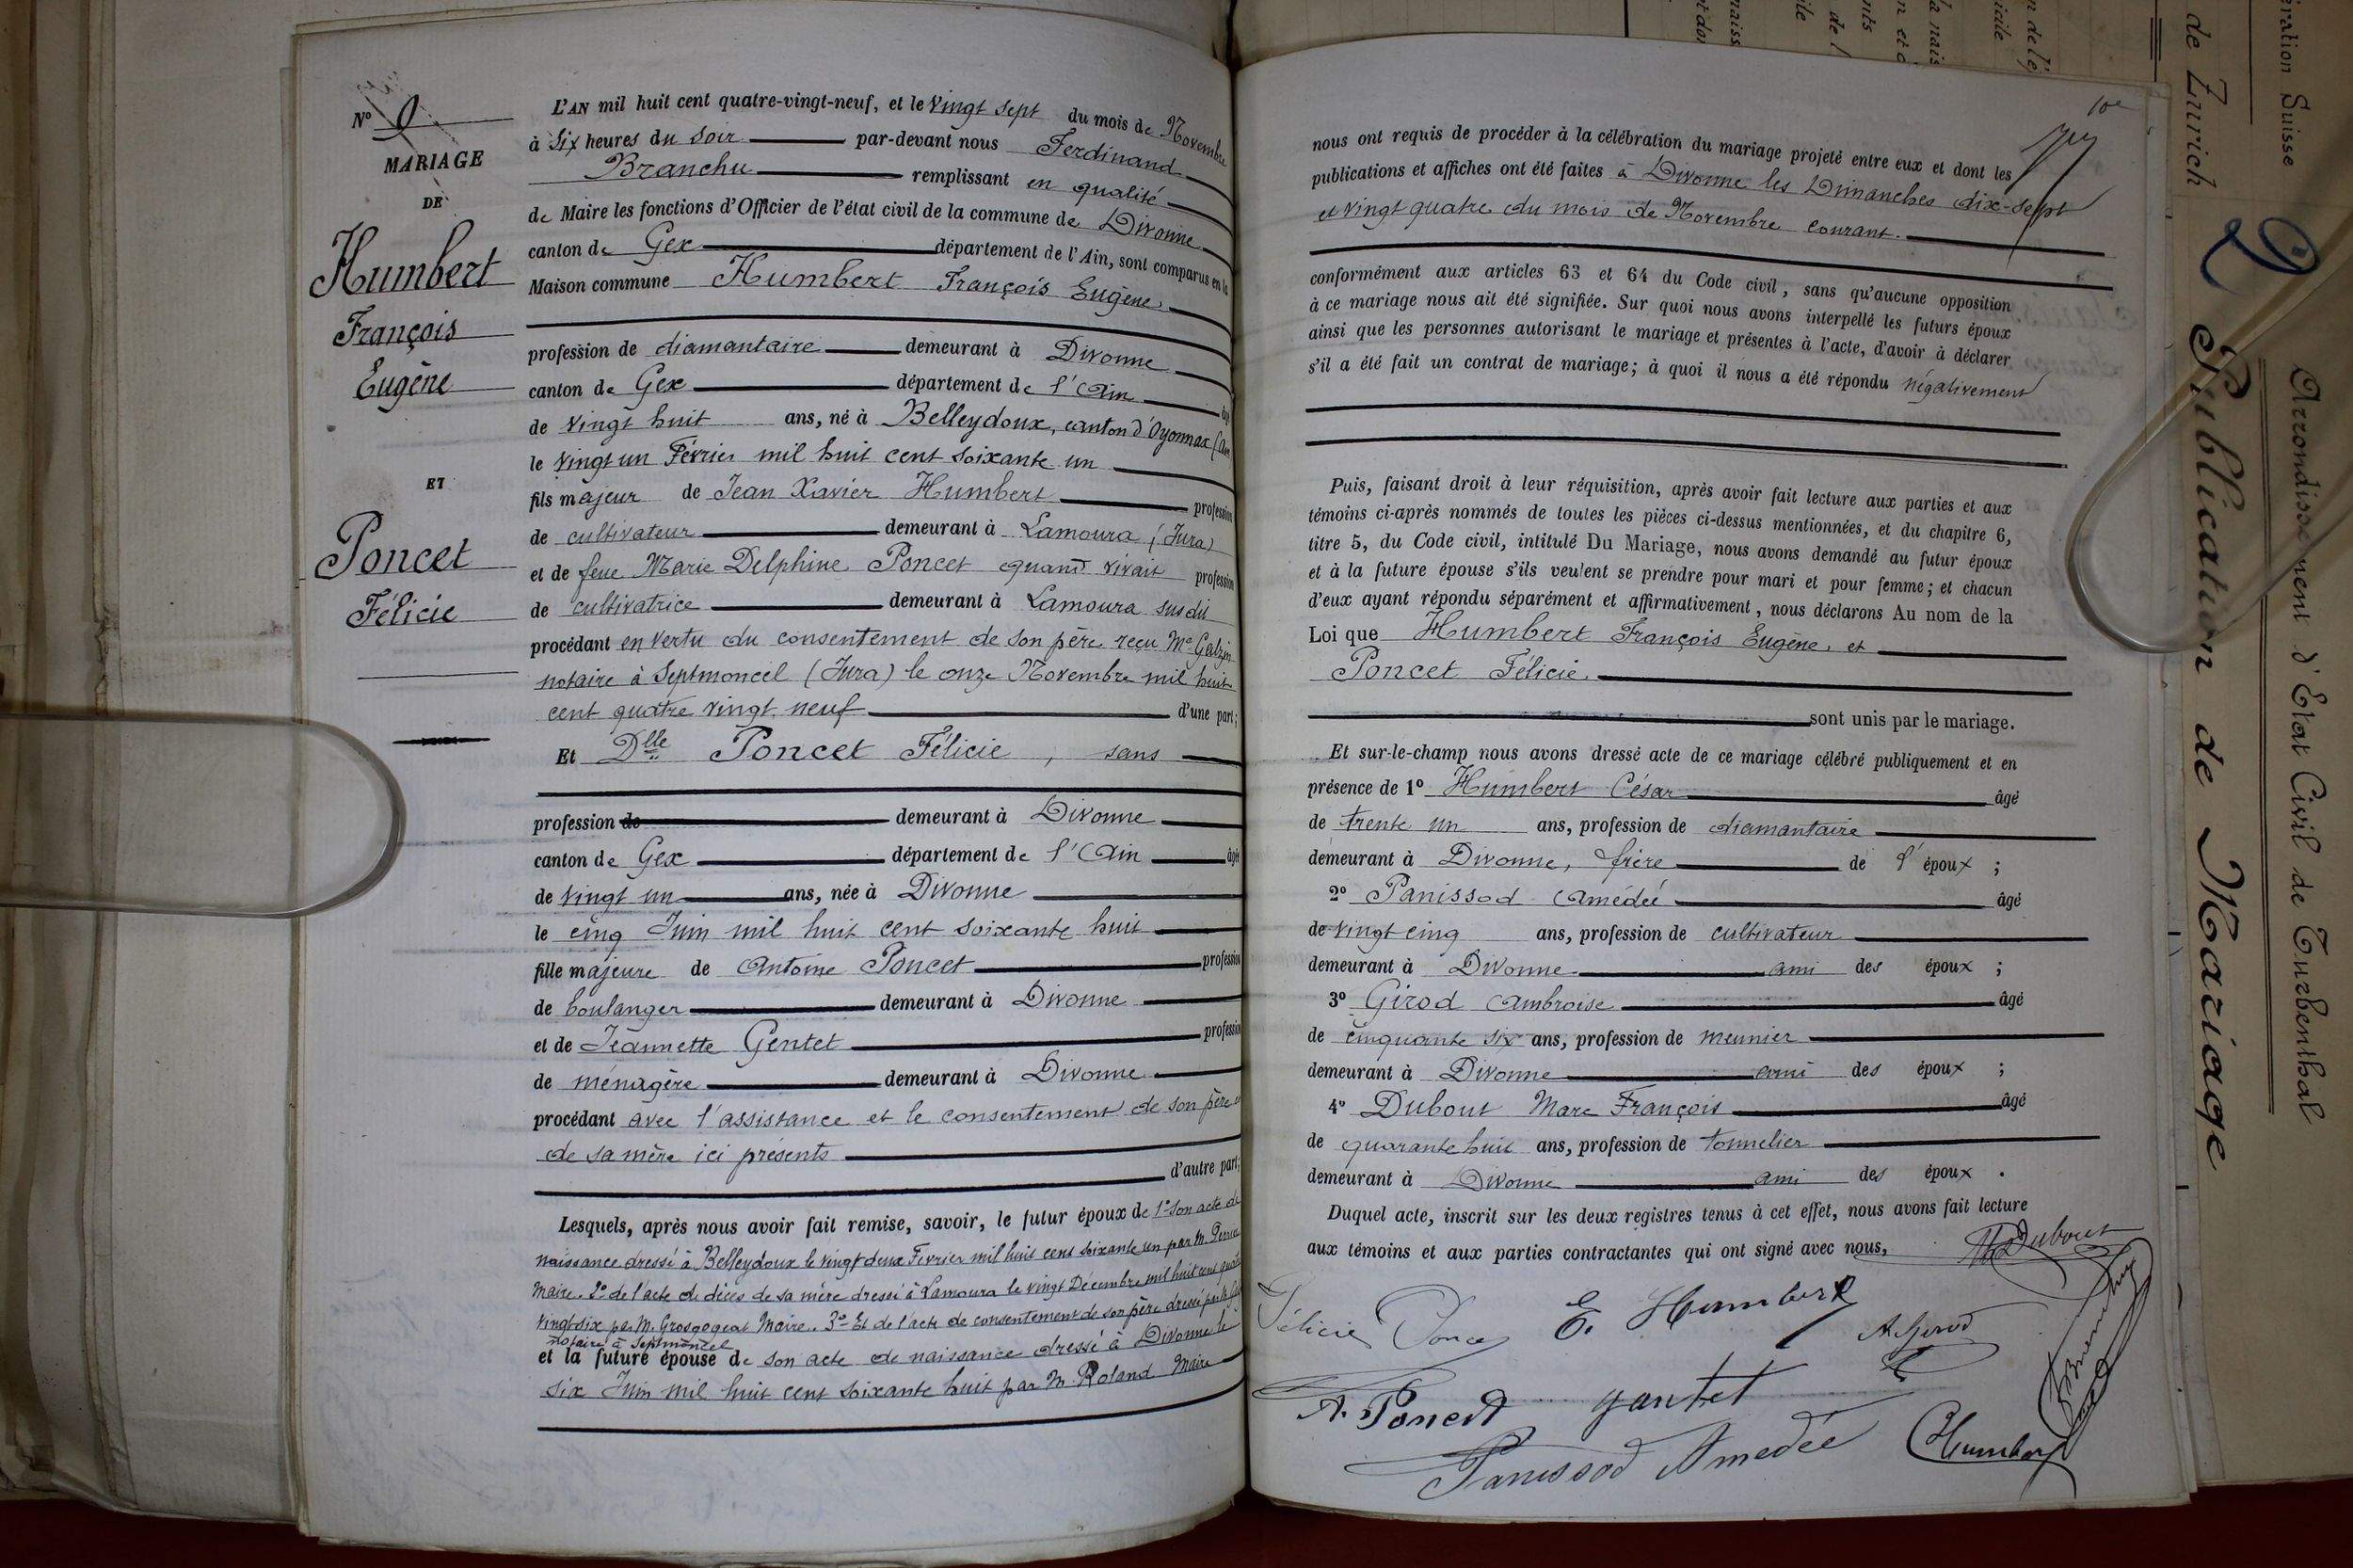 N° 9
MARIAGE
DE
Humbert
François
Eugène
ET
Poncet
Félicie
L'AN mil huit cent quatre-vingt-neuf, et le vingt sept du mois de Novembre
à six heures du soir par-devant nous Ferdinand
Branchu remplissant en qualité
de Maire les fonctions d'Officier de l'état civil de la commune de Divonne
canton de Gex département de l'Ain, sont comparus en la
Maison commune Humbert François Eugène
profession de diamantaire demeurant à Divonne
canton de Gex département de l'Ain âgé
de vingt huit ans, né à Belleydoux, canton d'Oyonnax (Ain
le vingt un Février mil huit cent soixante un
fils majeur de Jean Xavier Humbert profession
de cultivateur demeurant à Lamoura (Jura)
et de feue Marie Delphine Poncet quand vivait profession
de cultivatrice demeurant à Lamoura susdit
procédant en vertu du consentement de son père reçu Me
notaire à Septmoncel (Jura) le onze Novembre mil huit
cent quatre vingt neuf d'une part;
Et Dlle Poncet Félicie, sans
profession de demeurant à Divonne
canton de Gex département de l'Ain âgée
de vingt un ans, née à Divonne
le cinq Juin mil huit cent soixante huit
fille majeure de Antoine Poncet profession
de boulanger demeurant à Divonne
et de Jeannette Gentet profession
de ménagère demeurant à Divonne
procédant avec l'assistance et le consentement de son père et
de sa mère ici présents
d'autre part;
Lesquels, après nous avoir fait remise, savoir, le futur époux de 1° son acte de
naissance dressé à Belleydoux le vingt deux Février mil huit cent soixante un par M.
Maire. 2° de l'acte de décès de sa mère dressé à Lamoura le vingt Décembre mil huit cent quatre
vingt six par M. Grosgogeat Maire. 3° Et de l'acte de consentement de son père dressé par le
notaire à Septmoncel
et la future épouse de son acte de naissance dressé à Divonne le
six Juin mil huit cent soixante huit par M. Roland Maire
10e
nous ont requis de procéder à la célébration du mariage projeté entre eux et dont les
publications et affiches ont été faites à Divonne les Dimanches dix-sept
et vingt quatre du mois de Novembre courant.
conformément aux articles 63 et 64 du Code civil, sans qu'aucune opposition
à ce mariage nous ait été signifiée. Sur quoi nous avons interpellé les futurs époux
ainsi que les personnes autorisant le mariage et présentes à l'acte, d'avoir à déclarer
s'il a été fait un contrat de mariage; à quoi il nous a été répondu négativement
Puis, faisant droit à leur réquisition, après avoir fait lecture aux parties et aux
témoins ci-après nommés de toutes les pièces ci-dessus mentionnées, et du chapitre 6,
titre 5, du Code civil, intitulé Du Mariage, nous avons demandé au futur époux
et à la future épouse s'ils veulent se prendre pour mari et pour femme; et chacun
d'eux ayant répondu séparément et affirmativement, nous déclarons Au nom de la
Loi que Humbert François Eugène, et
Poncet Félicie.
sont unis par le mariage.
Et sur-le-champ nous avons dressé acte de ce mariage célébré publiquement et en
présence de 1° Humbert César âgé
de trente un ans, profession de diamantaire
demeurant à Divonne, frère de l'époux ;
2° Panissod Amédée âgé
de vingt cinq ans, profession de cultivateur
demeurant à Divonne ami des époux ;
3° Girod Ambroise âgé
de cinquante six ans, profession de meunier
demeurant à Divonne ami des époux ;
4° Dubout Marc François âgé
de quarante huit ans, profession de tonnelier
demeurant à Divonne ami des époux .
Duquel acte, inscrit sur les deux registres tenus à cet effet, nous avons fait lecture
aux témoins et aux parties contractantes qui ont signé avec nous,
Dubout
Félicie Poncet E. Humbert
A. Girod
A. Poncet gentet
Panissod Amedée
CHumbert
Branchu
de Zurich
Arrondissement d'Etat Civil de Turbenthal
Publication de Mariage